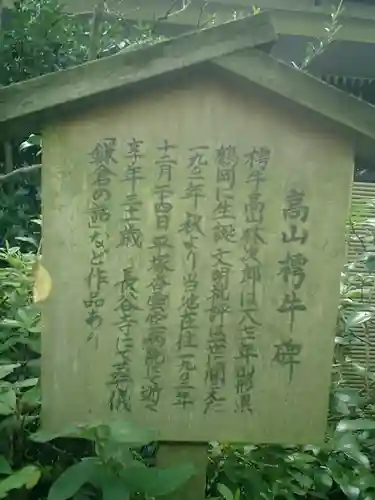 高山樗牛碑
樗牛高山林次郎は一八七一年山形県
鶴岡に生誕文明批評は世に聞えた
一九〇一年秋より当地在住一九〇二年
十二月二十四日平塚杏雲堂病院に逝く
享年 歳 長谷寺にて葬儀
「鎌倉の話」など作品あり